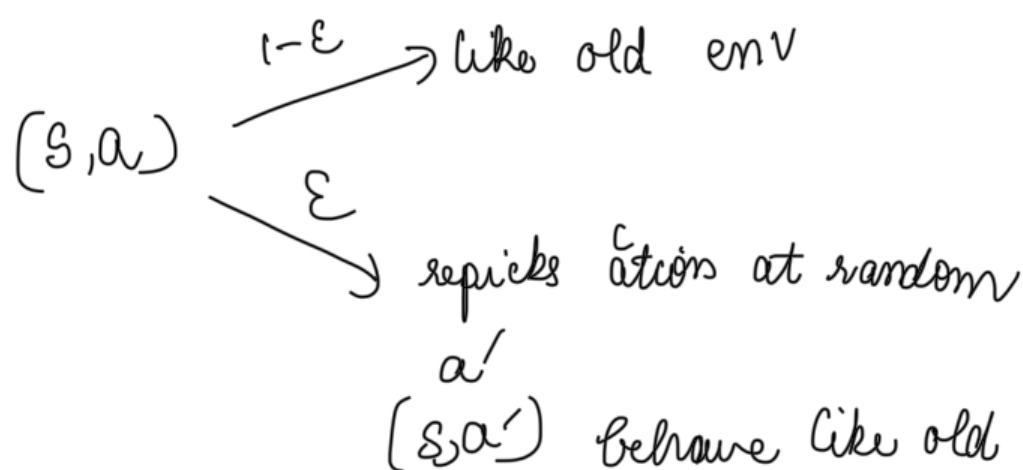 1-ε
like old env
(s,a)
ε
repicks atcion at random
a'
(s,a') behave like old